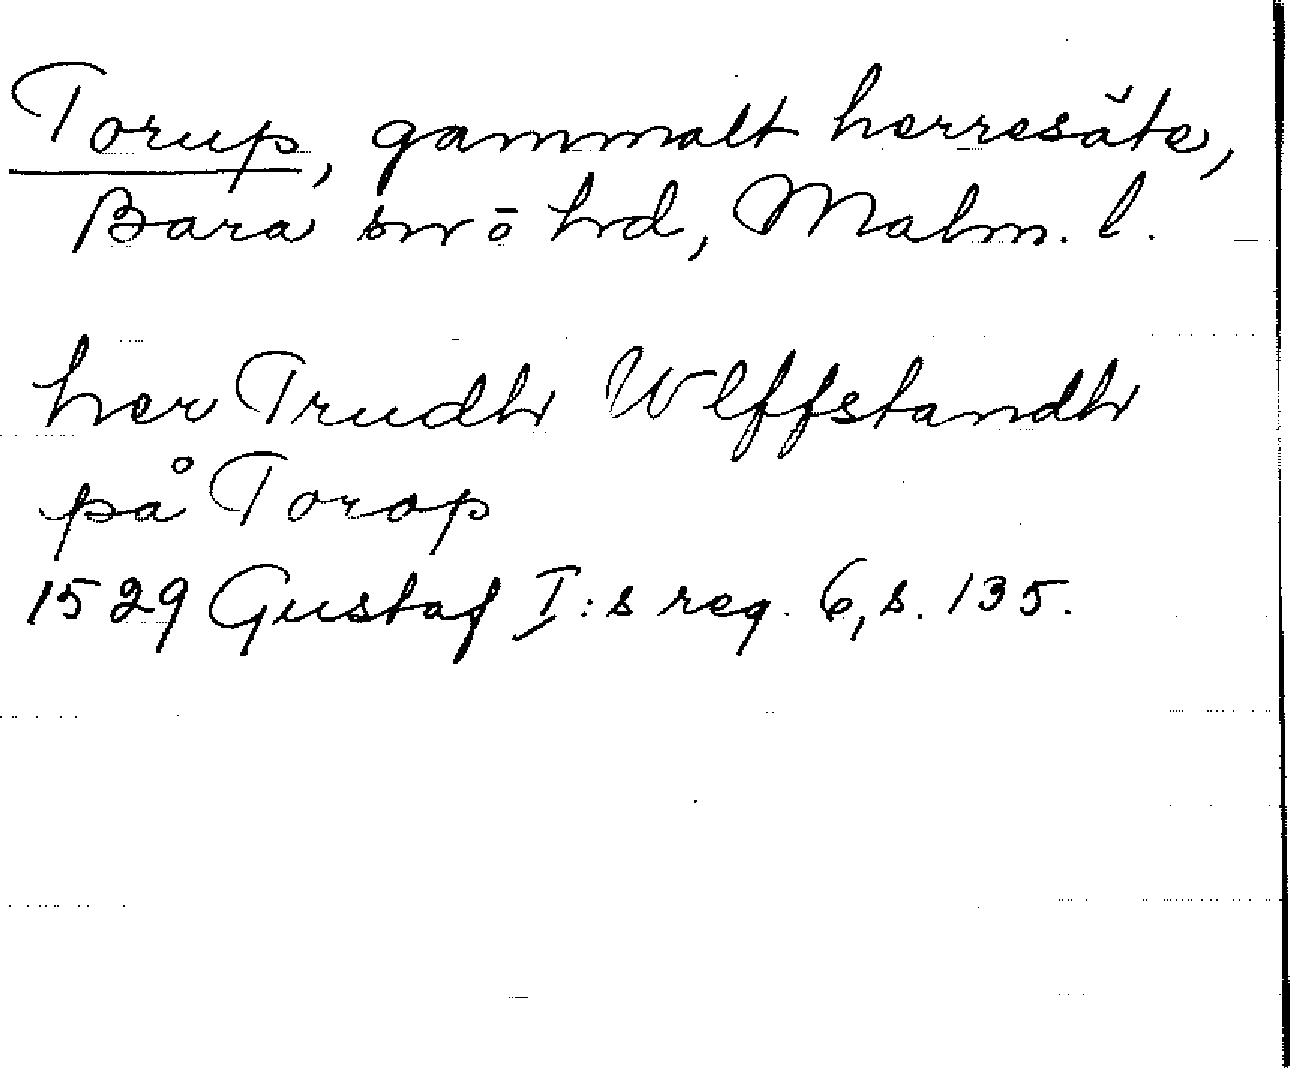 Torup, gammalt herresäte,
Bara sn ō hd, Malm. l.
her Trudh Wlffstandh
på Torop
1529 Gustaf I:s reg. 6, s. 135.